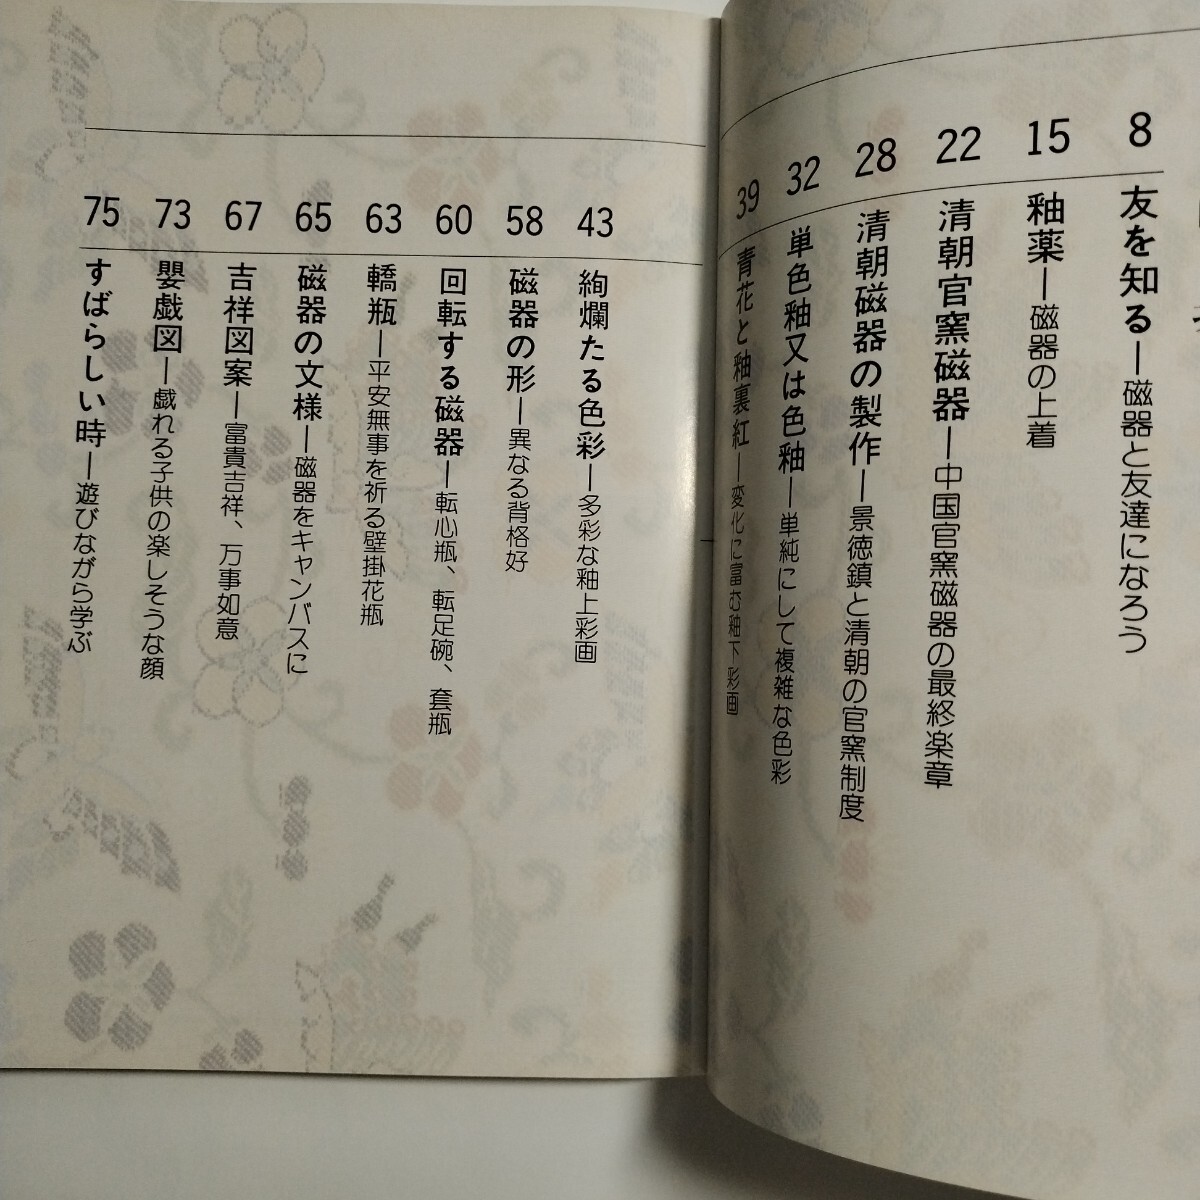 8 友を知る―磁器と友達になろう
15 釉薬―磁器の上着
22 清朝官窯磁器―中国官窯磁器の最終楽章
28 清朝磁器の製作―景徳鎮と清朝の官窯制度
32 単色釉又は色釉―単純にして複雑な色彩
39 青花と釉裏紅―変化に富む釉下彩画
43 絢爛たる色彩―多彩な釉上彩画
58 磁器の形―異なる背格好
60 回転する磁器―転心瓶、転足碗、套瓶
63 轎瓶―平安無事を祈る壁掛花瓶
65 磁器の文様―磁器をキャンバスに
67 吉祥図案―富貴吉祥、万事如意
73 嬰戯図―戯れる子供の楽しそうな顔
75 すばらしい時―遊びながら学ぶ